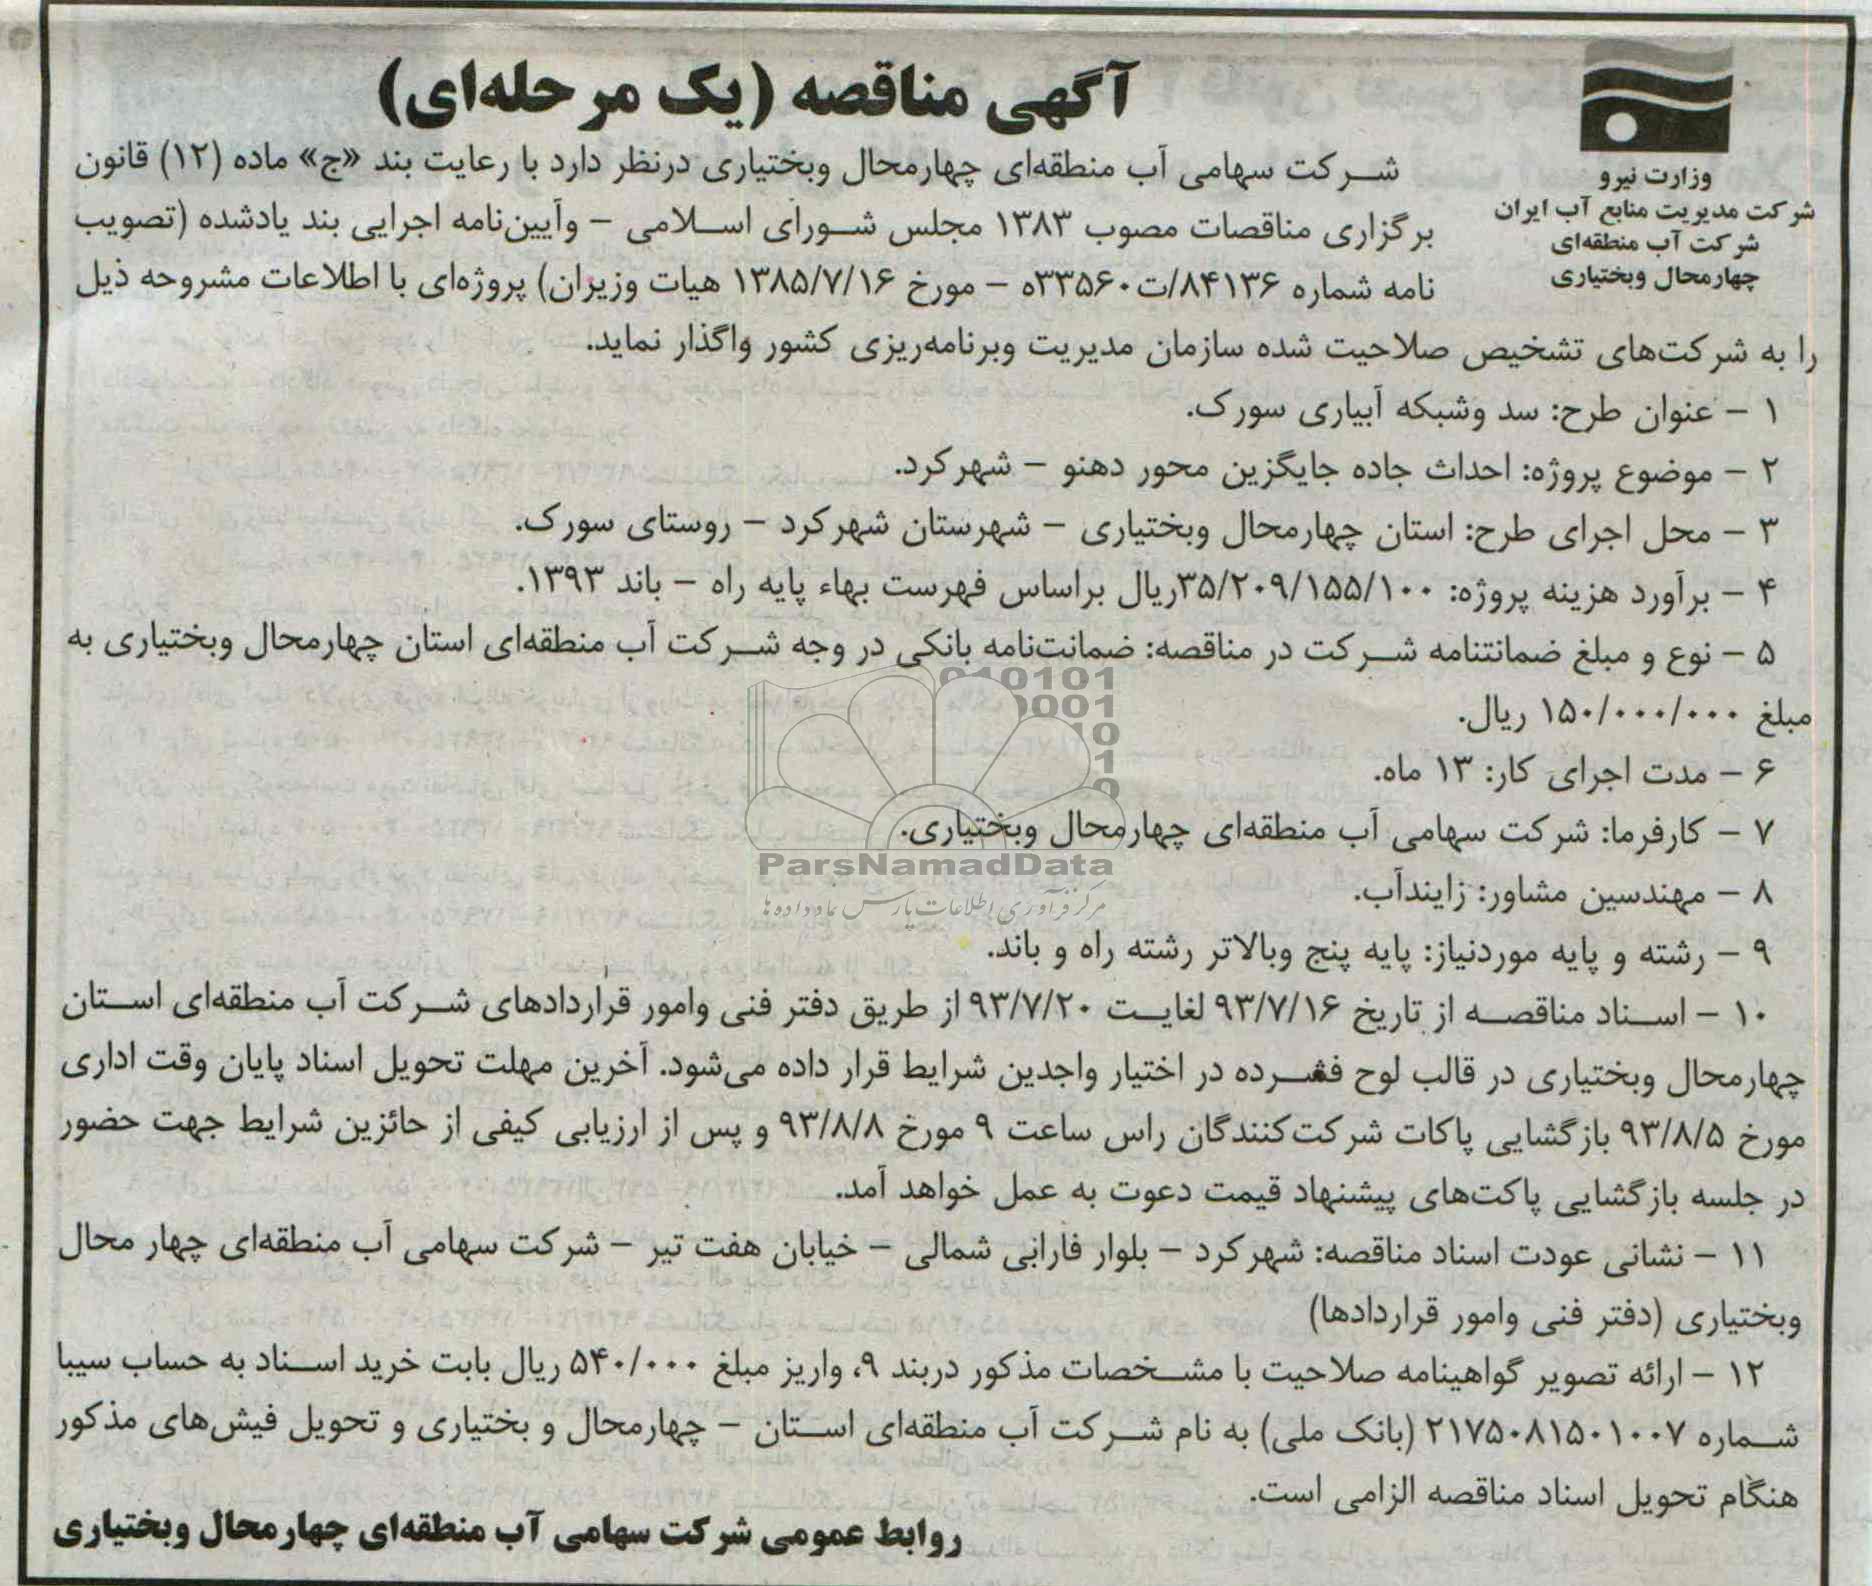 آگهی مناقصه (یک مرحله‌ای)
وزارت نیرو
شرکت مدیریت منابع آب ایران
شرکت آب منطقه‌ای
چهارمحال وبختیاری
شرکت سهامی آب منطقه‌ای چهارمحال وبختیاری درنظر دارد با رعایت بند «ج» ماده (۱۲) قانون
برگزاری مناقصات مصوب ۱۳۸۳ مجلس شورای اسلامی – وآیین‌نامه اجرایی بند یادشده (تصویب
نامه شماره ۸۴۱۳۶/ت۳۳۵۶۰ه – مورخ ۱۳۸۵/۷/۱۶ هیات وزیران) پروژه‌ای با اطلاعات مشروحه ذیل
را به شرکت‌های تشخیص صلاحیت شده سازمان مدیریت وبرنامه‌ریزی کشور واگذار نماید.
۱ – عنوان طرح: سد وشبکه آبیاری سورک.
۲ – موضوع پروژه: احداث جاده جایگزین محور دهنو – شهرکرد.
۳ – محل اجرای طرح: استان چهارمحال وبختیاری – شهرستان شهرکرد – روستای سورک.
۴ – برآورد هزینه پروژه: ۳۵/۲۰۹/۱۵۵/۱۰۰ریال براساس فهرست بهاء پایه راه – باند ۱۳۹۳.
۵ – نوع و مبلغ ضمانتنامه شرکت در مناقصه: ضمانت‌نامه بانکی در وجه شرکت آب منطقه‌ای استان چهارمحال وبختیاری به
مبلغ ۱۵۰/۰۰۰/۰۰۰ ریال.
۶ – مدت اجرای کار: ۱۳ ماه.
۷ – کارفرما: شرکت سهامی آب منطقه‌ای چهارمحال وبختیاری.
ParsNamadData
مرکز فرآوری اطلاعات پارس نماد داده ها
۸ – مهندسین مشاور: زایندآب.
۹ – رشته و پایه موردنیاز: پایه پنج وبالاتر رشته راه و باند.
۱۰ – اسناد مناقصه از تاریخ ۹۳/۷/۱۶ لغایت ۹۳/۷/۲۰ از طریق دفتر فنی وامور قراردادهای شرکت آب منطقه‌ای استان
چهارمحال وبختیاری در قالب لوح فشرده در اختیار واجدین شرایط قرار داده می‌شود. آخرین مهلت تحویل اسناد پایان وقت اداری
مورخ ۹۳/۸/۵ بازگشایی پاکات شرکت‌کنندگان راس ساعت ۹ مورخ ۹۳/۸/۸ و پس از ارزیابی کیفی از حائزین شرایط جهت حضور
در جلسه بازگشایی پاکت‌های پیشنهاد قیمت دعوت به عمل خواهد آمد.
۱۱ – نشانی عودت اسناد مناقصه: شهرکرد – بلوار فارابی شمالی – خیابان هفت تیر – شرکت سهامی آب منطقه‌ای چهار محال
وبختیاری (دفتر فنی وامور قراردادها)
۱۲ – ارائه تصویر گواهینامه صلاحیت با مشخصات مذکور دربند ۹، واریز مبلغ ۵۴۰/۰۰۰ ریال بابت خرید اسناد به حساب سیبا
شماره ۲۱۷۵۰۸۱۵۰۱۰۰۷ (بانک ملی) به نام شرکت آب منطقه‌ای استان – چهارمحال و بختیاری و تحویل فیش‌های مذکور
هنگام تحویل اسناد مناقصه الزامی است.
روابط عمومی شرکت سهامی آب منطقه‌ای چهارمحال وبختیاری